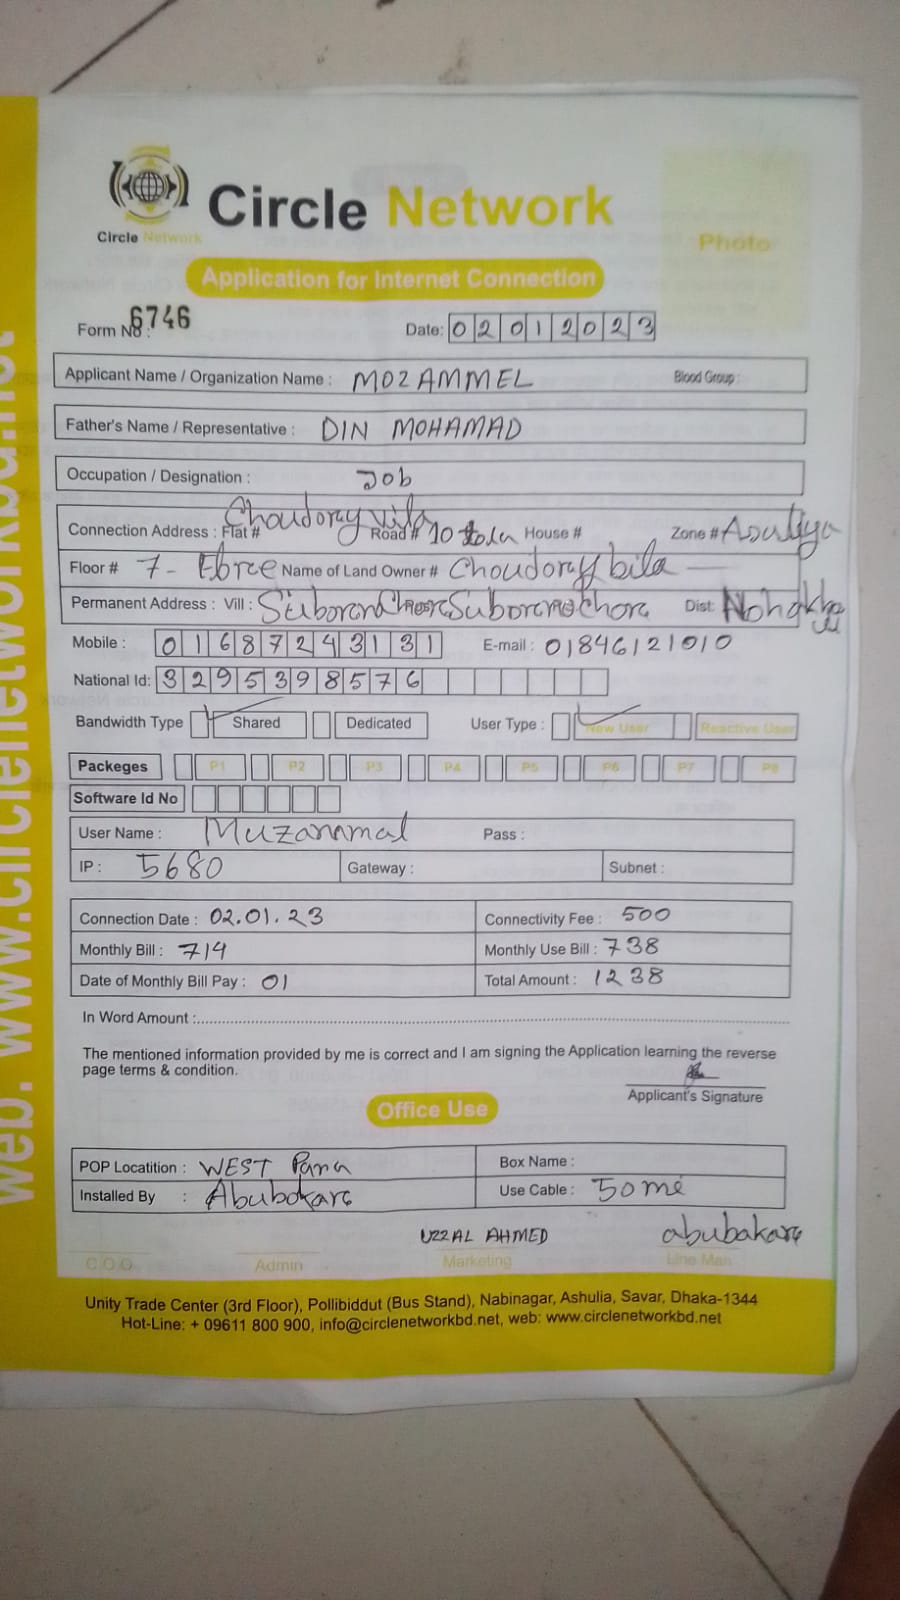 Circle Network
Circle Network
Photo
Application for Internet Connection
Form No : 6746 Date: 02012023
Applicant Name / Organization Name : MOZAMMEL Blood Group :
Father's Name / Representative : DIN MOHAMAD
Occupation / Designation : Job
Connection Address : Flat # Choudoray Road # 10 House # Zone # Asuliya
Floor # 7 - Name of Land Owner # Choudoray bila
Permanent Address : Vill : Dist:
Mobile : 01687243131 E-mail : 01846121010
National Id: 3295398576
Bandwidth Type Shared Dedicated User Type : New User Reactive User
Packeges P1 P2 P3 P4 P5 P6 P7 P8
Software Id No
User Name : Muzammal Pass :
IP : 5680 Gateway : Subnet :
Connection Date : 02.01.23 Connectivity Fee : 500
Monthly Bill : 714 Monthly Use Bill : 738
Date of Monthly Bill Pay : 01 Total Amount : 1238
In Word Amount :
The mentioned information provided by me is correct and I am signing the Application learning the reverse
page terms & condition.
Applicant's Signature
Office Use
POP Locatition : WEST Para Box Name :
Installed By : Abubokare Use Cable : 50 me
UZZAL AHMED abubakare
C.O.O Admin Marketing Line Man
Unity Trade Center (3rd Floor), Pollibiddut (Bus Stand), Nabinagar, Ashulia, Savar, Dhaka-1344
Hot-Line: + 09611 800 900, info@circlenetworkbd.net, web: www.circlenetworkbd.net
web. www.circlenetworkbd.net